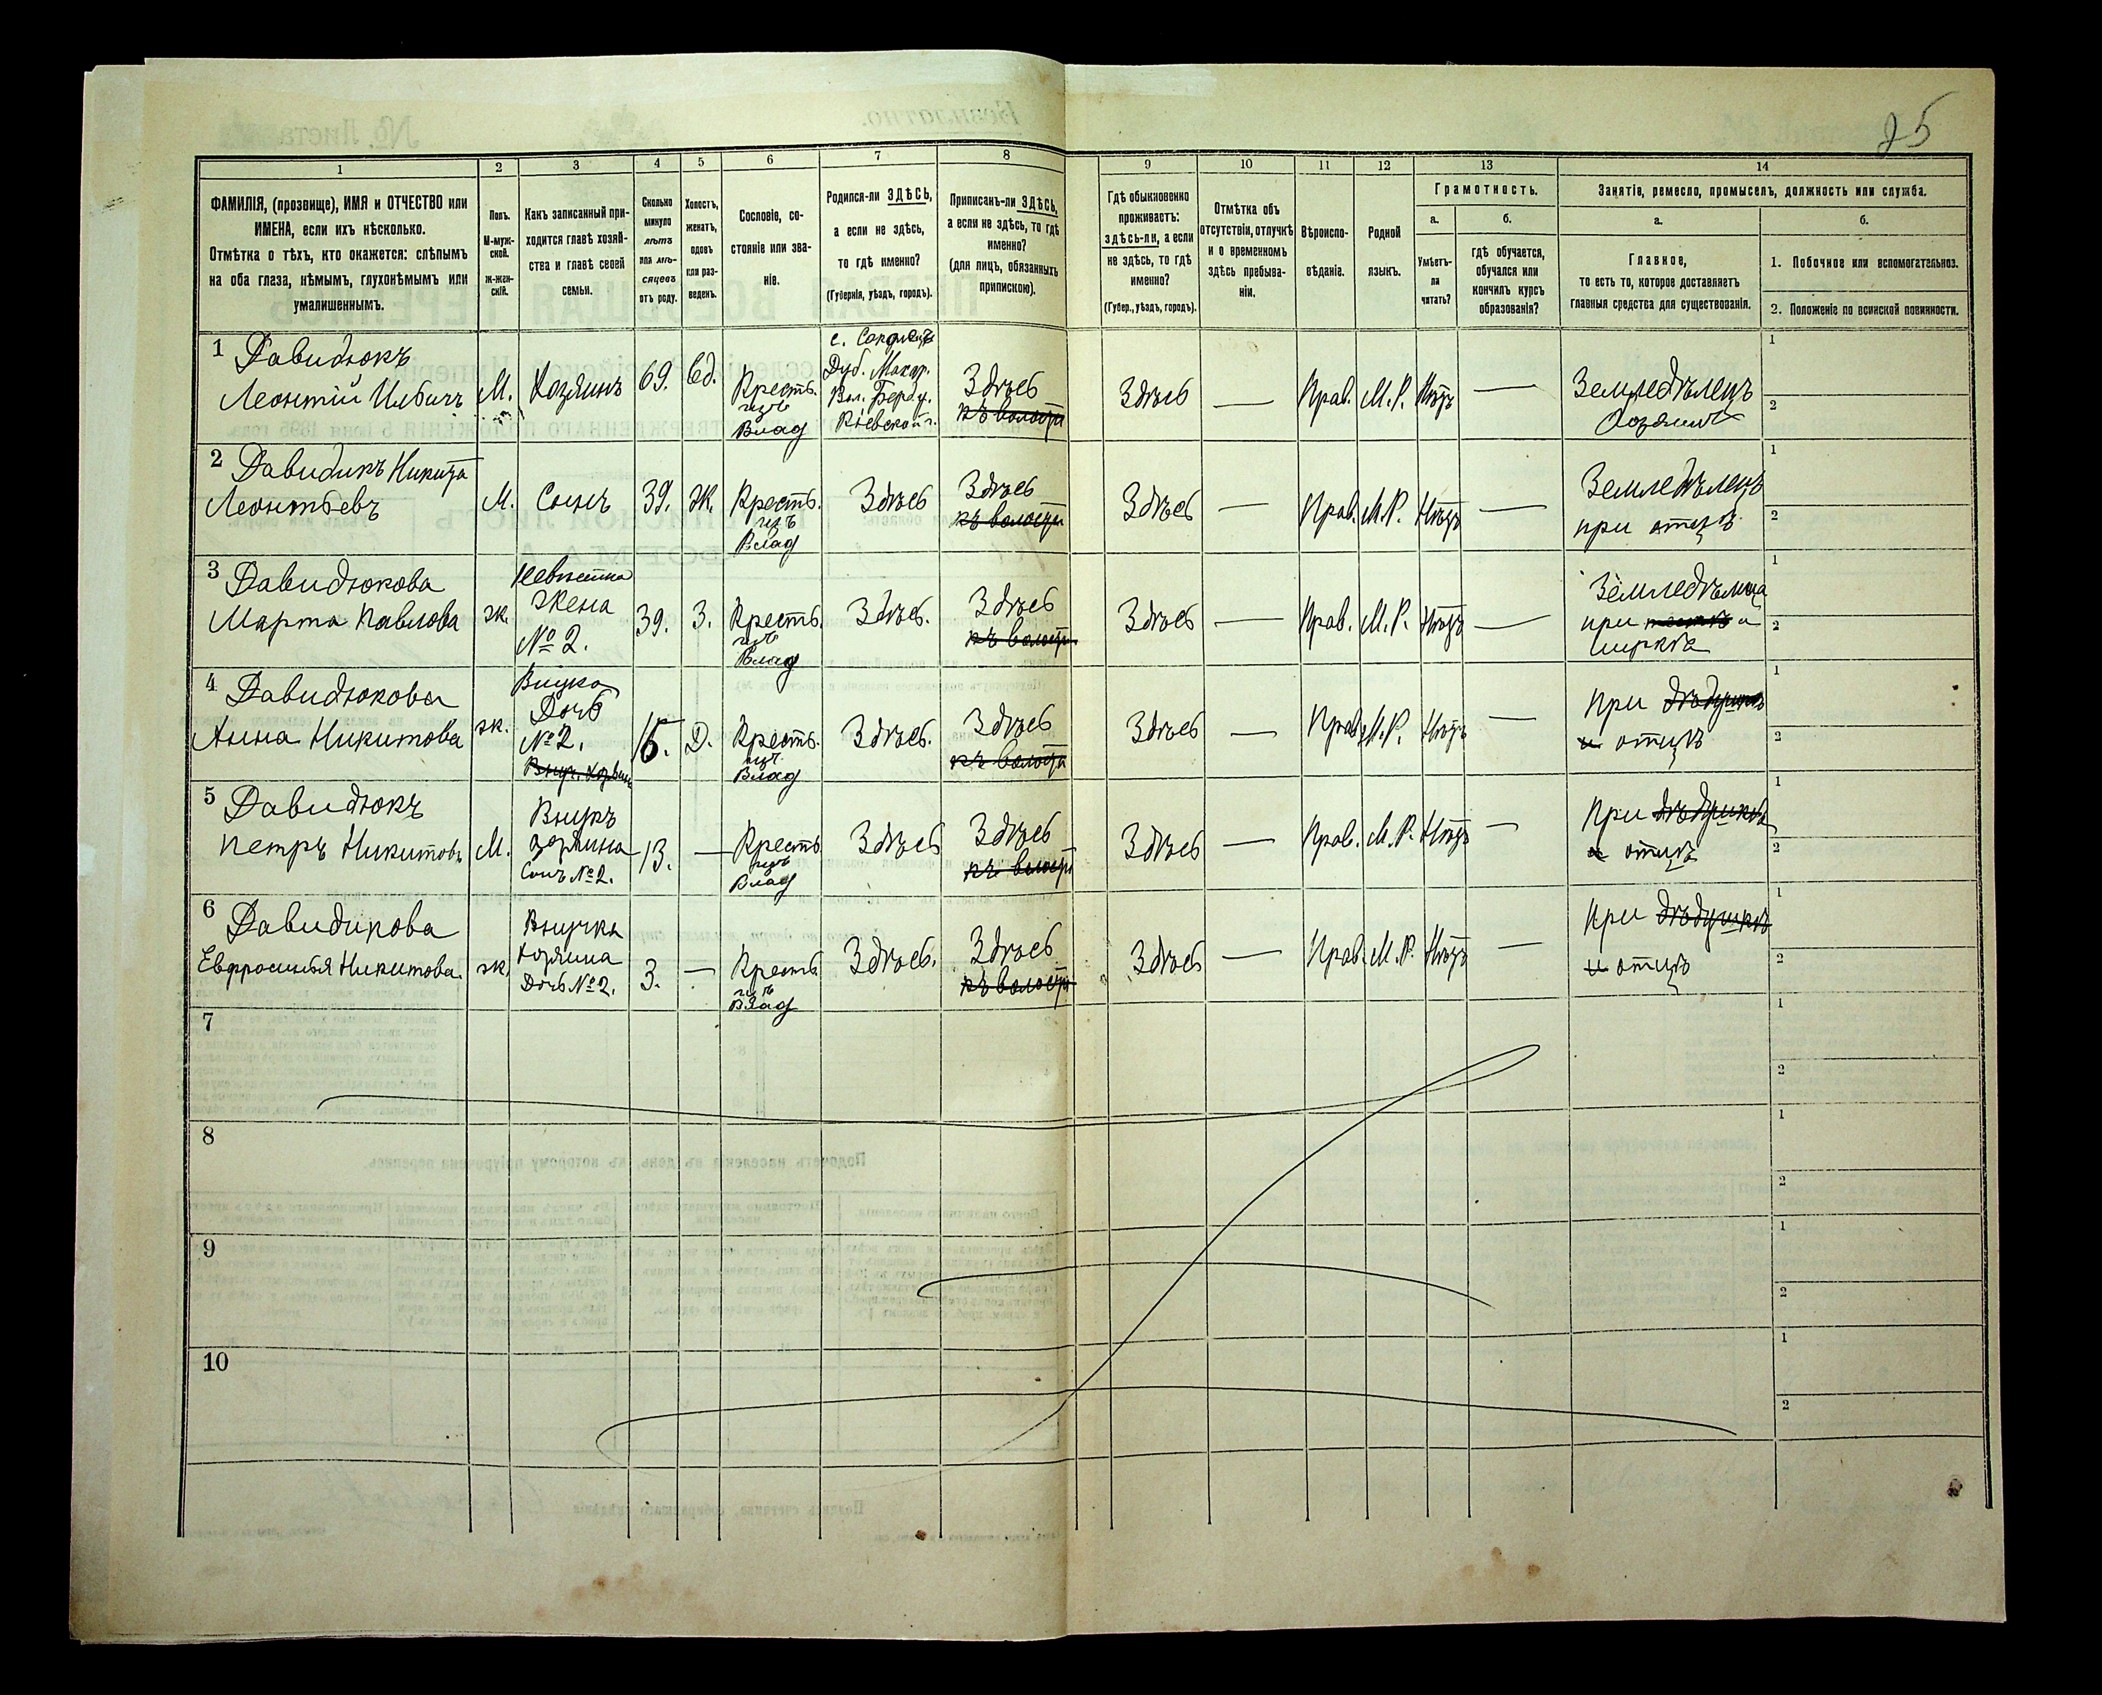 25
1 2 3 4 5 6 7 8 9 10 11 12 13 14
ФАМИЛІЯ, (прозвище), ИМЯ и ОТЧЕСТВО или
ИМЕНА, если ихъ нѣсколько.
Отмѣтка о тѣхъ, кто окажется: слѣпымъ
на оба глаза, нѣмымъ, глухонѣмымъ или
умалишеннымъ.
Полъ.
М-муж-
ской.
ж-жен-
скій.
Какъ записанный при-
ходится главѣ хозяй-
ства и главѣ своей
семьи.
Сколько
минуло
лѣтъ
или мѣ-
сяцевъ
отъ роду.
Холостъ,
женатъ,
вдовъ
или раз-
веденъ.
Сословіе, со-
стояніе или зва-
ніе.
Родился-ли ЗДѢСЬ,
а если не здѣсь,
то гдѣ именно?
(Губернія, уѣздъ, городъ).
Приписанъ-ли ЗДѢСЬ,
а если не здѣсь, то гдѣ
именно?
(для лицъ, обязанныхъ
припискою).
Гдѣ обыкновенно
проживаетъ:
здѣсь-ли, а если
не здѣсь, то гдѣ
именно?
(Губер., уѣздъ, городъ).
Отмѣтка объ
отсутствіи, отлучкѣ
и о временномъ
здѣсь пребыва-
ніи.
Вѣроиспо-
вѣданіе.
Родной
языкъ.
Грамотность.
а.
Умѣетъ-
ли
читать?
б.
гдѣ обучается,
обучался или
кончилъ курсъ
образованія?
Занятіе, ремесло, промыселъ, должность или служба.
а.
Главное,
то есть то, которое доставляетъ
главныя средства для существованія.
б.
1. Побочное или вспомогательное.
2. Положеніе по воинской повинности.
1 Давидюкъ
Леонтій Ильичъ
М.
Хозяинъ
69.
Вд.
Крестъ.
изъ
Влад
Дуб. Макар.
Вол. Берд. у.
Кіевской г.
Здѣсь
къ волости
Здѣсь
—
Прав.
М.Р.
Нѣтъ
—
Земледѣлецъ
Хозяинъ
1
2
2 Давидикъ Никита
Леонтьевъ
М.
Сынъ
39.
Ж.
Крестъ.
изъ
Влад
Здѣсь
Здѣсь
къ волости
Здѣсь
—
Прав.
М.Р.
Нѣтъ
—
Земледѣлецъ
при отцѣ
1
2
3 Давидюкова
Марта Павлова
ж.
Невѣстка
Жена
№ 2.
39.
З.
Крестъ.
изъ
Влад
Здѣсь.
Здѣсь
къ волости
Здѣсь
—
Прав.
М.Р.
Нѣтъ
—
при
1
2
4 Давидюкова
Анна Никитова
ж.
Внучка
Дочь
№ 2.
15.
Д.
Крестъ.
изъ
Влад
Здѣсь.
Здѣсь
къ волости
Здѣсь
—
Прав.
М.Р.
Нѣтъ
—
При дѣдушкѣ
и отцѣ
1
2
5 Давидюкъ
Петръ Никитовъ
М.
Внукъ
хозяина
Сынъ № 2.
13.
—
Крестъ
изъ
Влад
Здѣсь
Здѣсь
къ волости
Здѣсь
—
Прав.
М.Р.
Нѣтъ
—
При дѣдушкѣ
и отцѣ
1
2
6 Давидикова
Евфросинья Никитова.
ж.
Внучка
хозяина
Дочь № 2.
3.
—
Крестъ.
изъ
Влад
Здѣсь.
Здѣсь
къ волости
Здѣсь
—
Прав.
М.Р.
Нѣтъ
—
При дѣдушкѣ
и отцѣ
1
2
7
1
2
8
1
2
9
1
2
10
1
2